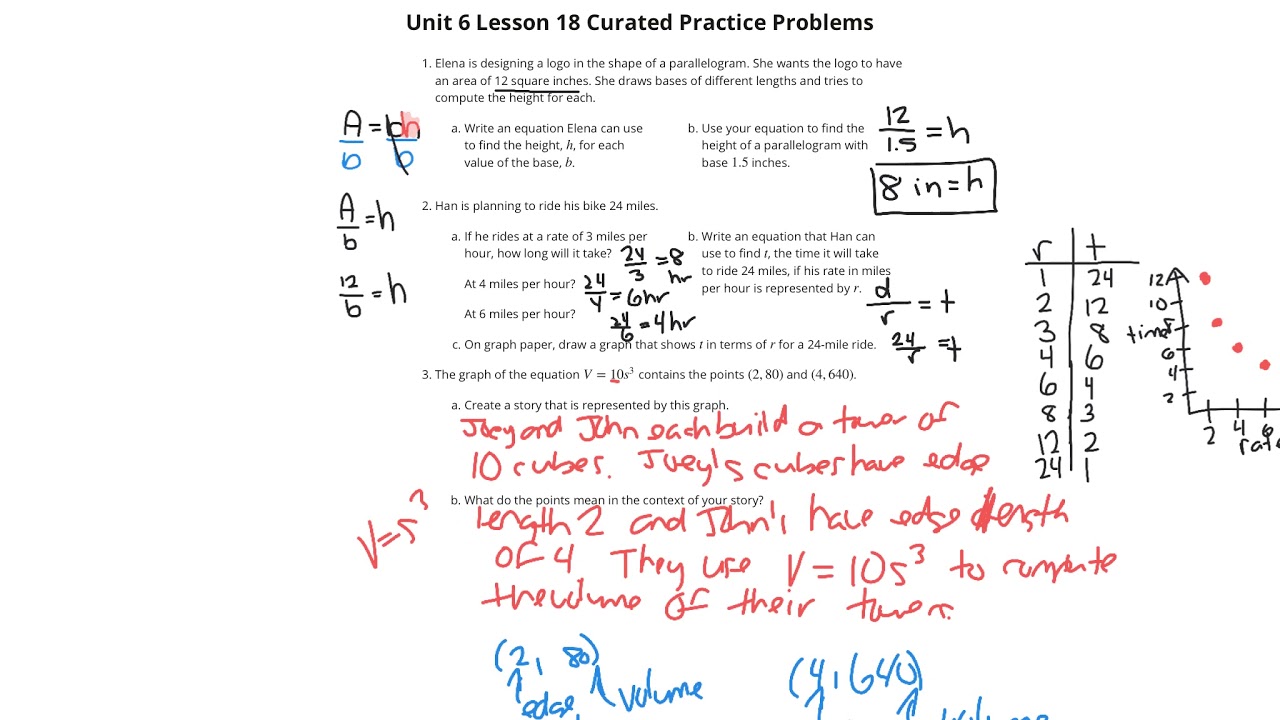 Unit 6 Lesson 18 Curated Practice Problems
1. Elena is designing a logo in the shape of a parallelogram. She wants the logo to have
an area of 12 square inches. She draws bases of different lengths and tries to
compute the height for each.
A = bh
b b
a. Write an equation Elena can use
to find the height, h, for each
value of the base, b.
b. Use your equation to find the
height of a parallelogram with
base 1.5 inches.
12/1.5 = h
8 in = h
A/b = h
12/b = h
2. Han is planning to ride his bike 24 miles.
a. If he rides at a rate of 3 miles per
hour, how long will it take? 24/3 = 8 hr
At 4 miles per hour? 24/4 = 6hr
At 6 miles per hour? 24/6 = 4hr
b. Write an equation that Han can
use to find t, the time it will take
to ride 24 miles, if his rate in miles
per hour is represented by r.
d/r = t
24/r = t
c. On graph paper, draw a graph that shows t in terms of r for a 24-mile ride.
r t
1 24
2 12
3 8
4 6
6 4
8 3
12 2
24 1
12
10
time 8
6
4
2
2 4 6
rate
3. The graph of the equation V = 10s³ contains the points (2, 80) and (4, 640).
a. Create a story that is represented by this graph.
Joey and John each build a tower of
10 cubes. Joey's cubes have edge
b. What do the points mean in the context of your story?
length 2 and John's have edge length
of 4 They use V = 10s³ to compute
the volume of their towers.
V = s³
(2, 80)
edge volume
(4, 640)
volume